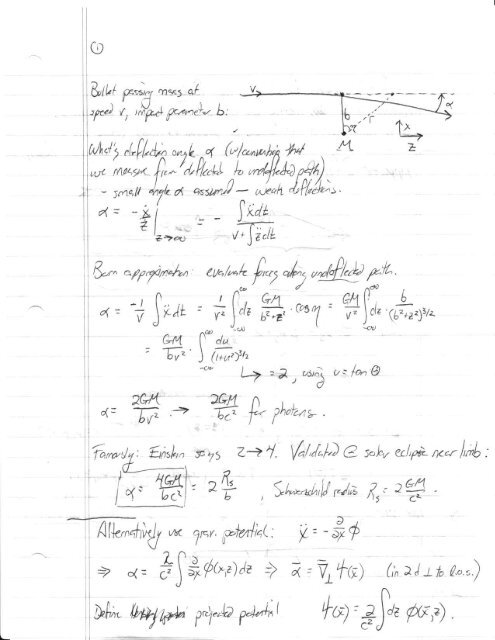 ①
Bullet passing mass at
speed v, impact parameter b:
v
b
η
r
α
M
x
z
What's deflection angle α (w/ convention that
we measure from deflected to undeflected path)
- small angle α assumed — weak deflections.
α = - ẋ/ż |z→∞ = - ∫ẍdt / v+∫z̈dt
Born approximation: evaluate forces along undeflected path.
α = -1/v ∫ẍdt = 1/v² ∫_{-∞}^{∞} dz GM/b²+z² · cosη = GM/v² ∫_{-∞}^{∞} dz · b/(b²+z²)^{3/2}
= GM/bv² · ∫_{-∞}^{∞} du/(1+u²)^{3/2}
↳ = 2, using u = tan θ
α = 2GM/bv² . → 2GM/bc² for photons.
Famously: Einstein says 2→4. Validated @ solar eclipse near limb:
α = 4GM/bc² = 2 Rs/b , Schwarzschild radius Rs = 2GM/c² .
Alternatively use grav. potential: ẍ = - ∂/∂x ϕ
⇒ α = 2/c² ∫ ∂/∂x ϕ(x,z)dz ⇒ α̅ = ∇̅⊥ Ψ(x̅) (in 2d ⊥ to l.o.s.)
Define projected potential Ψ(x̅) = 2/c² ∫dz ϕ(x̅,z).